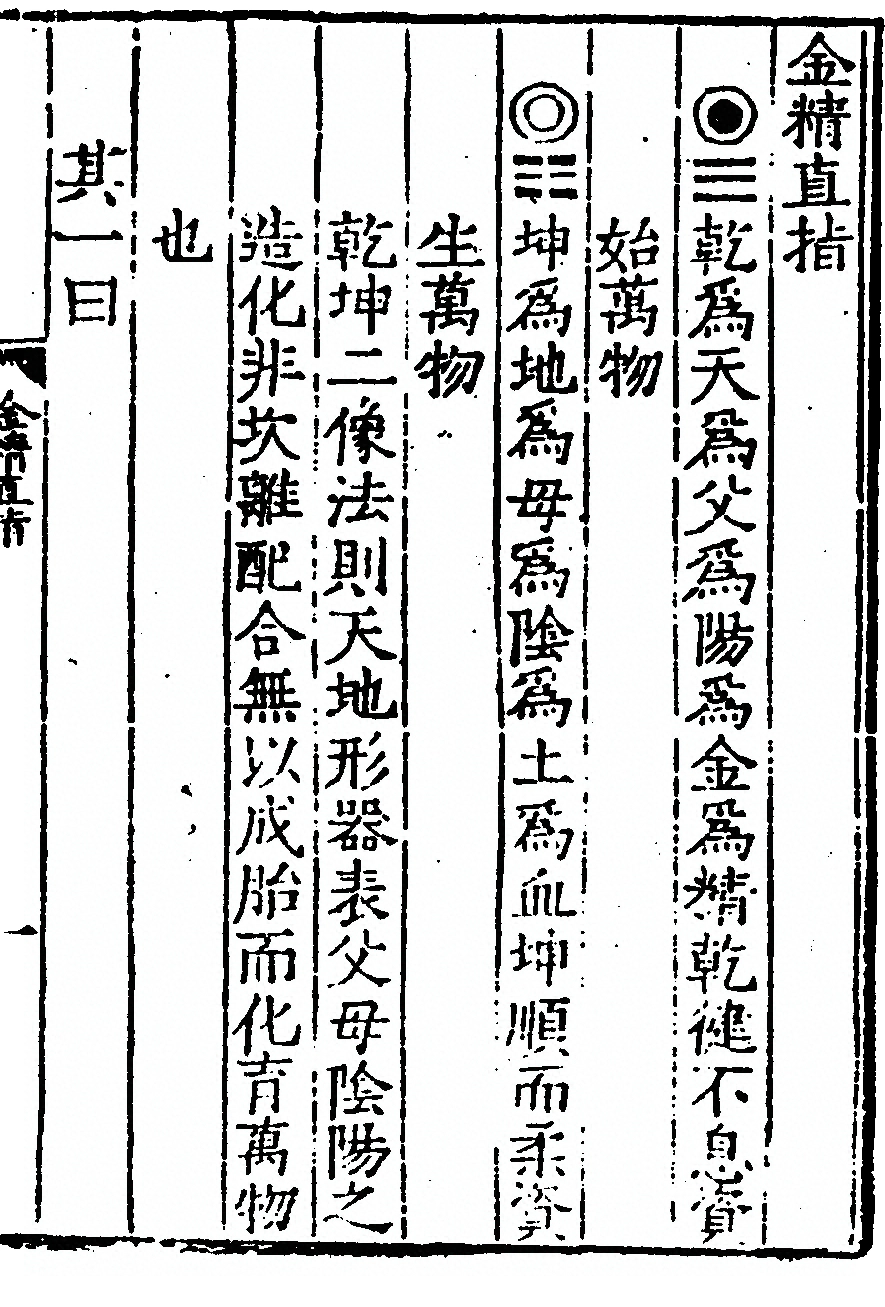 金精直指
☰乾爲天爲父爲陽爲金爲精乾健不息資
始萬物
☷坤爲地爲母爲陰爲土爲血坤順而柔資
生萬物
乾坤二像法則天地形器表父母陰陽之
造化非坎離配合無以成胎而化育萬物
也
其一曰
金精直指
一